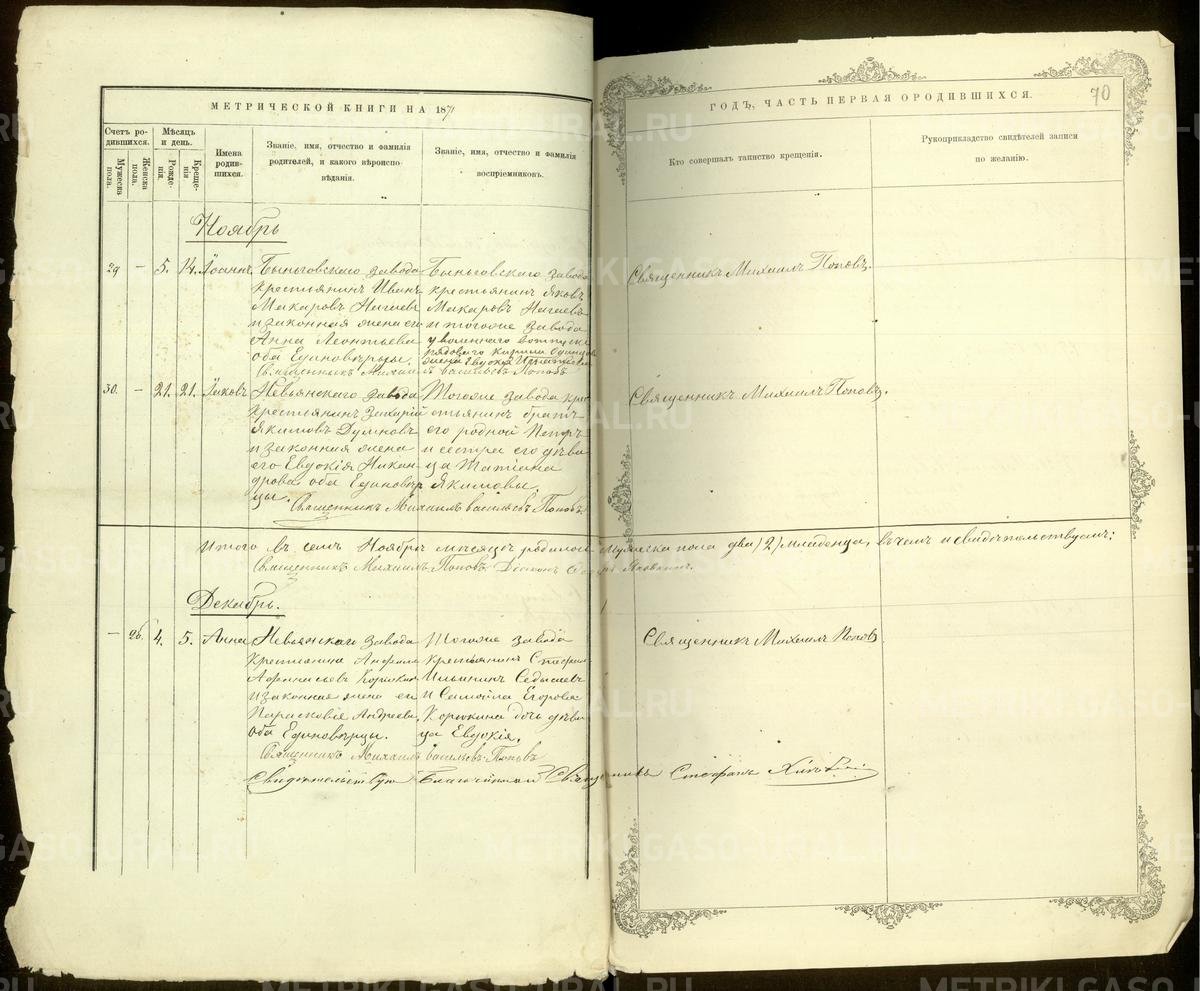 МЕТРИЧЕСКОЙ КНИГИ НА 1871
Счетъ родившихся.
Мужеска пола.
Женска пола.
Мѣсяцъ и день.
Рожденія.
Крещенія.
Имена родившихся.
Званіе, имя, отчество и фамилія родителей, и какого вѣроисповѣданія.
Званіе, имя, отчество и фамилія воспріемниковъ.
ГОДЪ, ЧАСТЬ ПЕРВАЯ О РОДИВШИХСЯ.
70
Кто совершалъ таинство крещенія.
Рукоприкладство свидѣтелей записи по желанію.
Ноябрь
29 – 5. 14. Іоаннъ
Быньговскаго завода
крестьянинъ Иванъ
Макаровъ Нагаевъ
и законная жена его
Анна Леонтьева
оба Единовѣрцы.
Быньговскаго завода
крестьянинъ Яковъ
Макаровъ Нагаевъ
и тогоже завода
рядоваго Кирила
жена Евдокія
Священникъ Михаилъ Васильевъ Поповъ
Священникъ Михаилъ Поповъ.
30. – 21. 21. Іаковъ
Невьянскаго завода
крестьянинъ Захарій
Якимовъ
и законная жена
его Евдокія Никан
дрова оба Единовѣр
цы.
Тогоже завода кре
стьянинъ братъ
его родной Петръ
и сестра его дѣви
ца Татіана
Якимовы.
Священникъ Михаилъ Васильевъ Поповъ
Священникъ Михаилъ Поповъ.
Итого въ семъ Ноябрѣ мѣсяцѣ родилось Мужеска пола два /2/ младенца, въ чемъ и свидѣтельствуемъ:
Священникъ Михаилъ Поповъ Діаконъ
Декабрь.
– 26. 4. 5. Анна
Невьянскаго завода
Крестьянина
Афанасьевъ
и законная жена его
Парасковія Андреева
оба Единовѣрцы.
Тогоже завода
крестьянинъ Стефанъ
Ильинъ
и Самойла Егорова
Корюкина дочь дѣви
ца Евдокія.
Священникъ Михаилъ Васильевъ Поповъ
Священникъ Михаилъ Поповъ
Благочинный Священникъ Стефанъ
METRIKI.GASO-URAL.RU